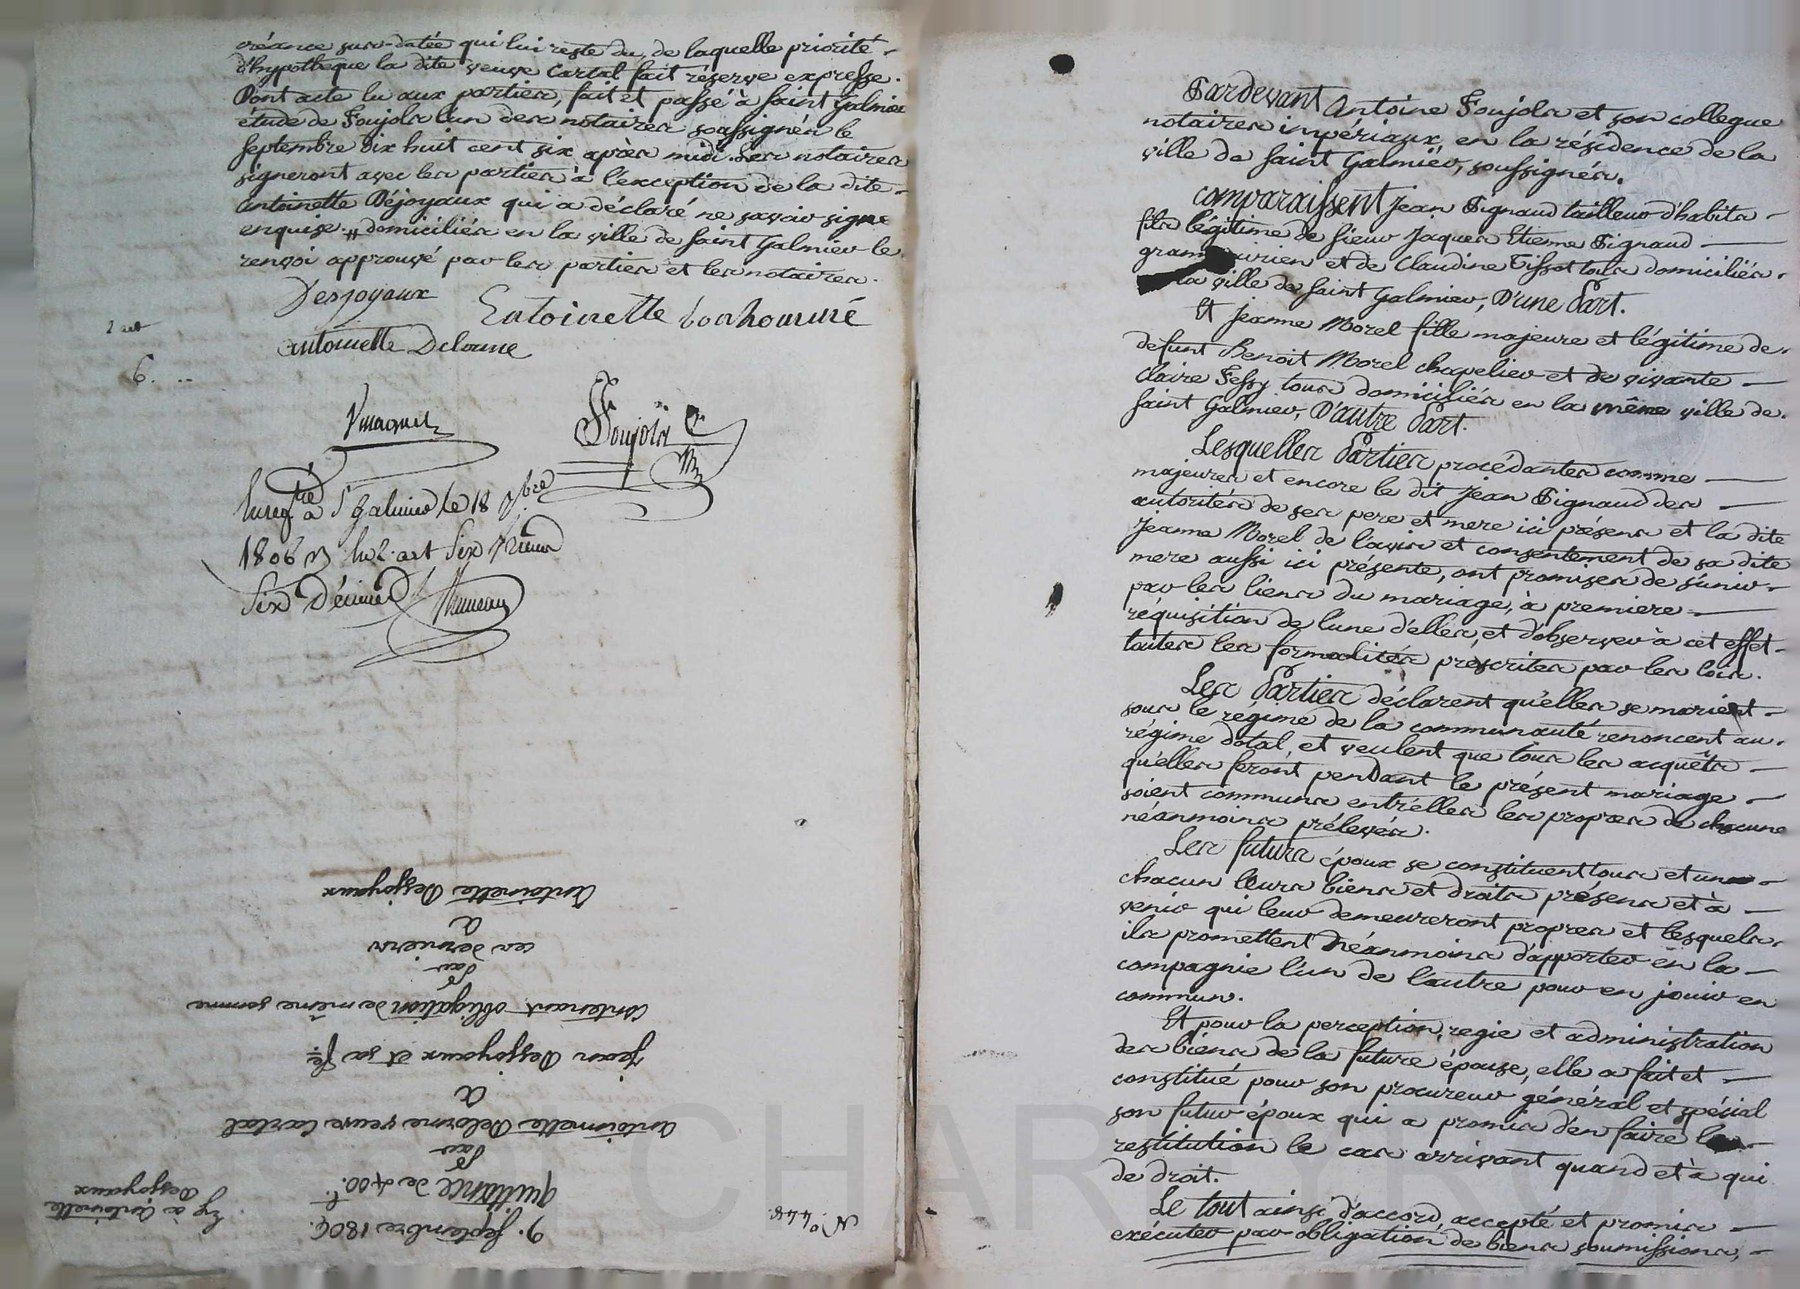 créance sus-datée qui lui reste du, de laquelle priorité
d'hypotheque la dite veuve Cartal fait réserve expresse.
Dont acte lu aux parties, fait et passé à Saint Galmier
étude de Foujols l'un des notaires soussignés le
septembre dix huit cent six après midi. Les notaires
signeront avec les parties à l'exception de la dite
Antoinette Déjoyaux qui a déclaré ne savoir signe
enquise. # domiciliés en la ville de Saint Galmier le
renvoi approuvé par les parties et les notaires.
Desjoyaux Entoinette bonhoumé
antoinette Delorme
6.
Foujols
Enregtré à St Galmier le 18 7bre
1806
Six Décimes
Antoinette Desjoyaux
à
ces derniers
Par
Contenant obligation de même somme
Jean Desjoyaux et sa fe.
à
Antoinette Delorme veuve Cartal
Par
quittance de 400. f
9. Septembre 1806.
Exp à Antoinette
Desjoyaux
N.o 448.
Pardevant Antoine Foujols et son collegue
notaires imperiaux, en la résidence de la
ville de Saint Galmier, soussignés.
Comparaissent Jean Pignaud tailleur d'habits
fils légitime de Sieur Jaques Etienne Pignaud
et de Claudine Tissot tous domiciliés
la ville de Saint Galmier, D'une Part.
Et Jeanne Morel fille majeure et légitime de
defunt Benoit Morel chapelier et de vivante
Claire Fessy tous domiciliés en la même ville de
Saint Galmier, D'autre Part.
Lesquelles Parties procédantes comme
majeures et encore le dit Jean Pignaud des
autorités de ses pere et mere ici présens et la dite
Jeanne Morel de l'avis et consentement de sa dite
mere aussi ici présente, ont promises de s'unir
par les liens du mariage, à premiere
réquisition de l'une d'elles, et d'observer à cet effet
toutes les formalités préscrites par les lois.
Les Parties déclarent qu'elles se marient
sous le régime de la communauté renoncent au
régime dotal, et veulent que tous les acquêts
qu'elles feront pendant le présent mariage
soient communs entr'elles les propres de chacune
néanmoins prélevés.
Les futurs époux se constituent tous et un
chacun leurs biens et droits présens et à
venir qui leur demeureront propres et lesquels
ils promettent néanmoins d'apporter en la
compagnie l'un de l'autre pour en jouir en
commun.
Et pour la perception, regie et administration
des biens de la future épouse, elle a fait et
constitué pour son procureur général et spécial
son futur époux qui a promis d'en faire la
restitution le cas arrivant quand et à qui
de droit.
Le tout ainsi d'accord, accepté et promis
exécuter par obligation de biens soumissions,
CHARLEYRON